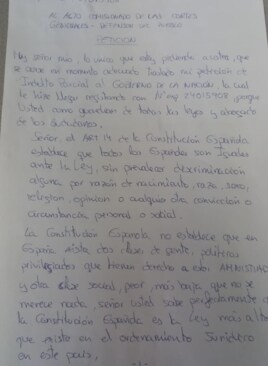 AL ALTO COMISIONADO DE LAS CORTES
GENERALES - DEFENSOR DEL PUEBLO
PETICION
Muy señor mio, lo unico que estoy pidiendo a ustes, que
se curse al momento adecuado Traslado mi peticion de
Indulto Parcial al GOBIERNO DE LA NACION la cual
le hice llegar registrada con Nº, porque
Usted como guardian de todas las leyes y abogado
de los
Señor, el ART 14 de la Constitución Española
establece que todos los Españoles son Iguales
ante la Ley, sin prevalecer discriminación
alguna por razón de nacimiento, raza, sexo,
religion, opinion o cualquier otra convicción o
circunstancia personal o social.
La Constitucion Española no establece que en
España exista dos clases de gente, politicos
privilegiados que tienen derecho a AMNISTIAS
y otra clase social, peor, mas baja, que no se
merece nada, señor usted sabe perfectamente que
la Constitución Española es la Ley mas alta
que existe en el ordenamiento
en este pais,